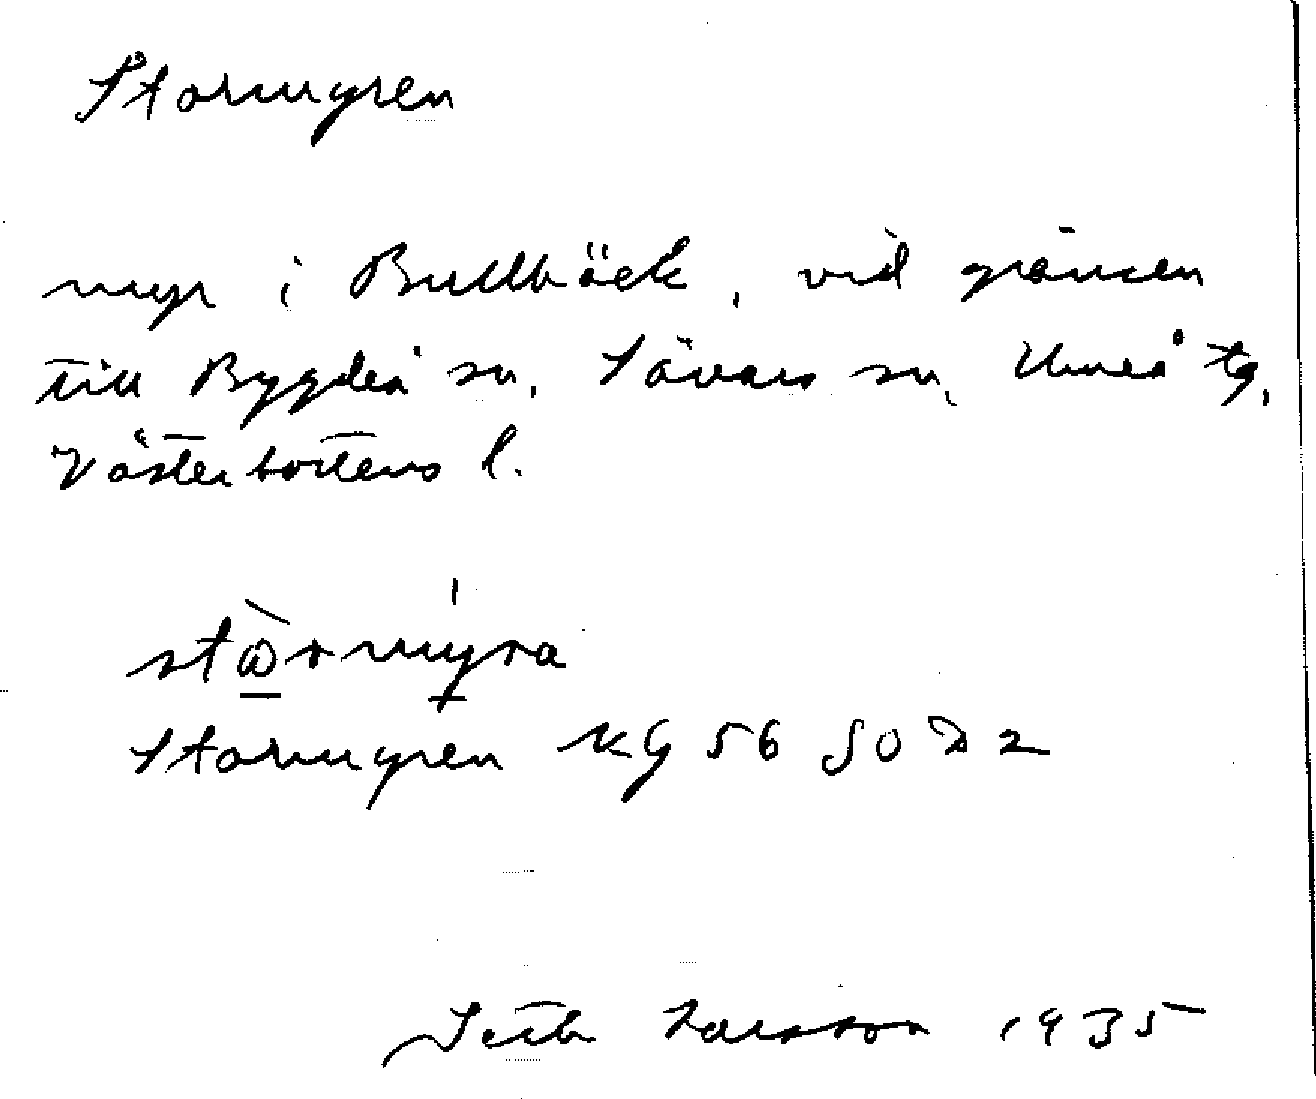 Stormyren
myr i Bullbäck, vid gränsen
till Bygdeå sn, Sävars sn, Umeå tg,
Västerbottens l.
stơrmyra
Stormyren KG 56 SO D 2
Seth Larsson 1935